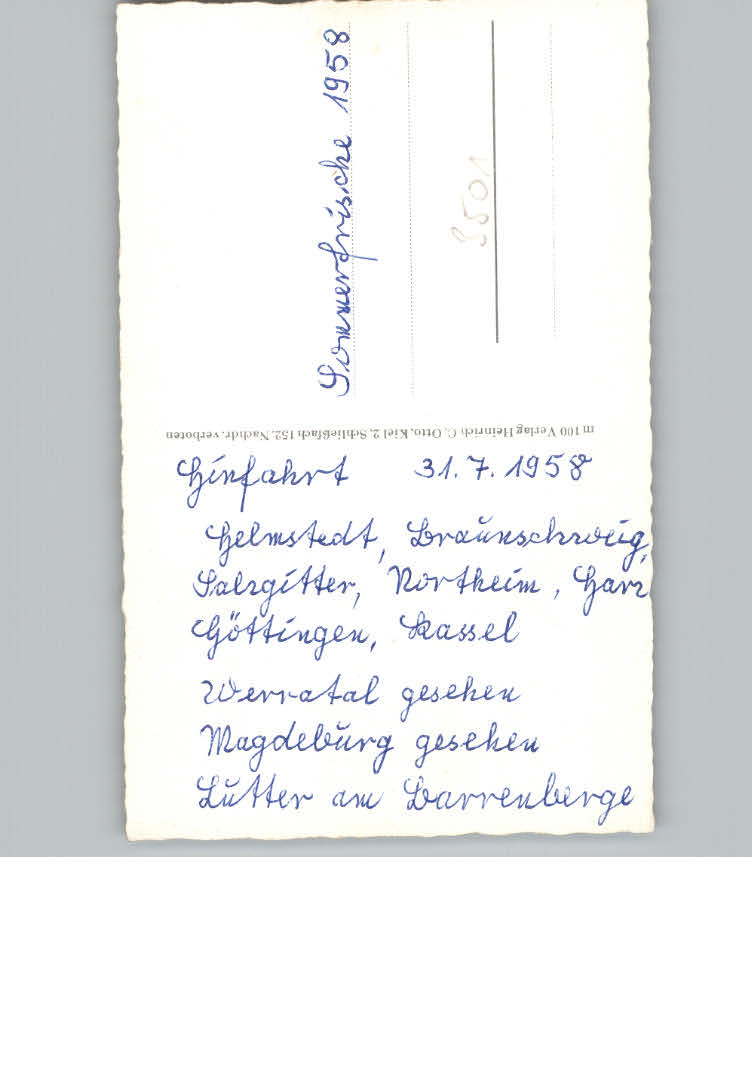 Sommerfrische 1958
9501
m 100 Verlag Heinrich C. Otto, Kiel 2, Schließfach 152. Nachdr. verboten
Hinfahrt 31.7.1958
Helmstedt, Braunschweig,
Salzgitter, Northeim, Harz
Göttingen, Kassel
Werratal gesehen
Magdeburg gesehen
Lutter am Barrenberge